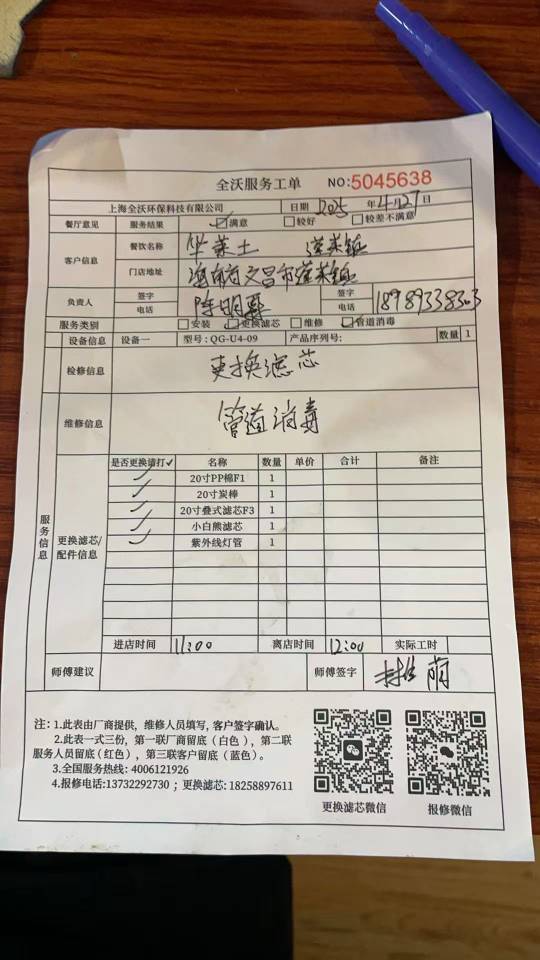 全沃服务工单 NO:5045638
上海全沃环保科技有限公司 日期 2025 年 4月27日
餐厅意见 服务结果 ☑满意 □较好 □较差不满意
客户信息 餐饮名称 华莱士 蓬莱镇
门店地址 海南省文昌市蓬莱镇
负责人 签字 电话 陈明 签字 电话
服务类别 □安装 ☑更换滤芯 □维修 ☑管道消毒
设备信息 设备一 型号：QG-U4-09 产品序列号: 数量 1
检修信息 更换滤芯
维修信息 管道消毒
服务信息
更换滤芯/配件信息
是否更换请打✓ 名称 数量 单价 合计 备注
✓ 20寸PP棉F1 1
✓ 20寸炭棒 1
✓ 20寸叠式滤芯F3 1
✓ 小白熊滤芯 1
✓ 紫外线灯管 1
进店时间 11:00 离店时间 12:00 实际工时
师傅建议 师傅签字
注：1.此表由厂商提供，维修人员填写，客户签字确认。
2.此表一式三份，第一联厂商留底（白色），第二联
服务人员留底(红色），第三联客户留底（蓝色）。
3.全国服务热线: 4006121926
4.报修电话:13732292730；更换滤芯: 18258897611
更换滤芯微信 报修微信